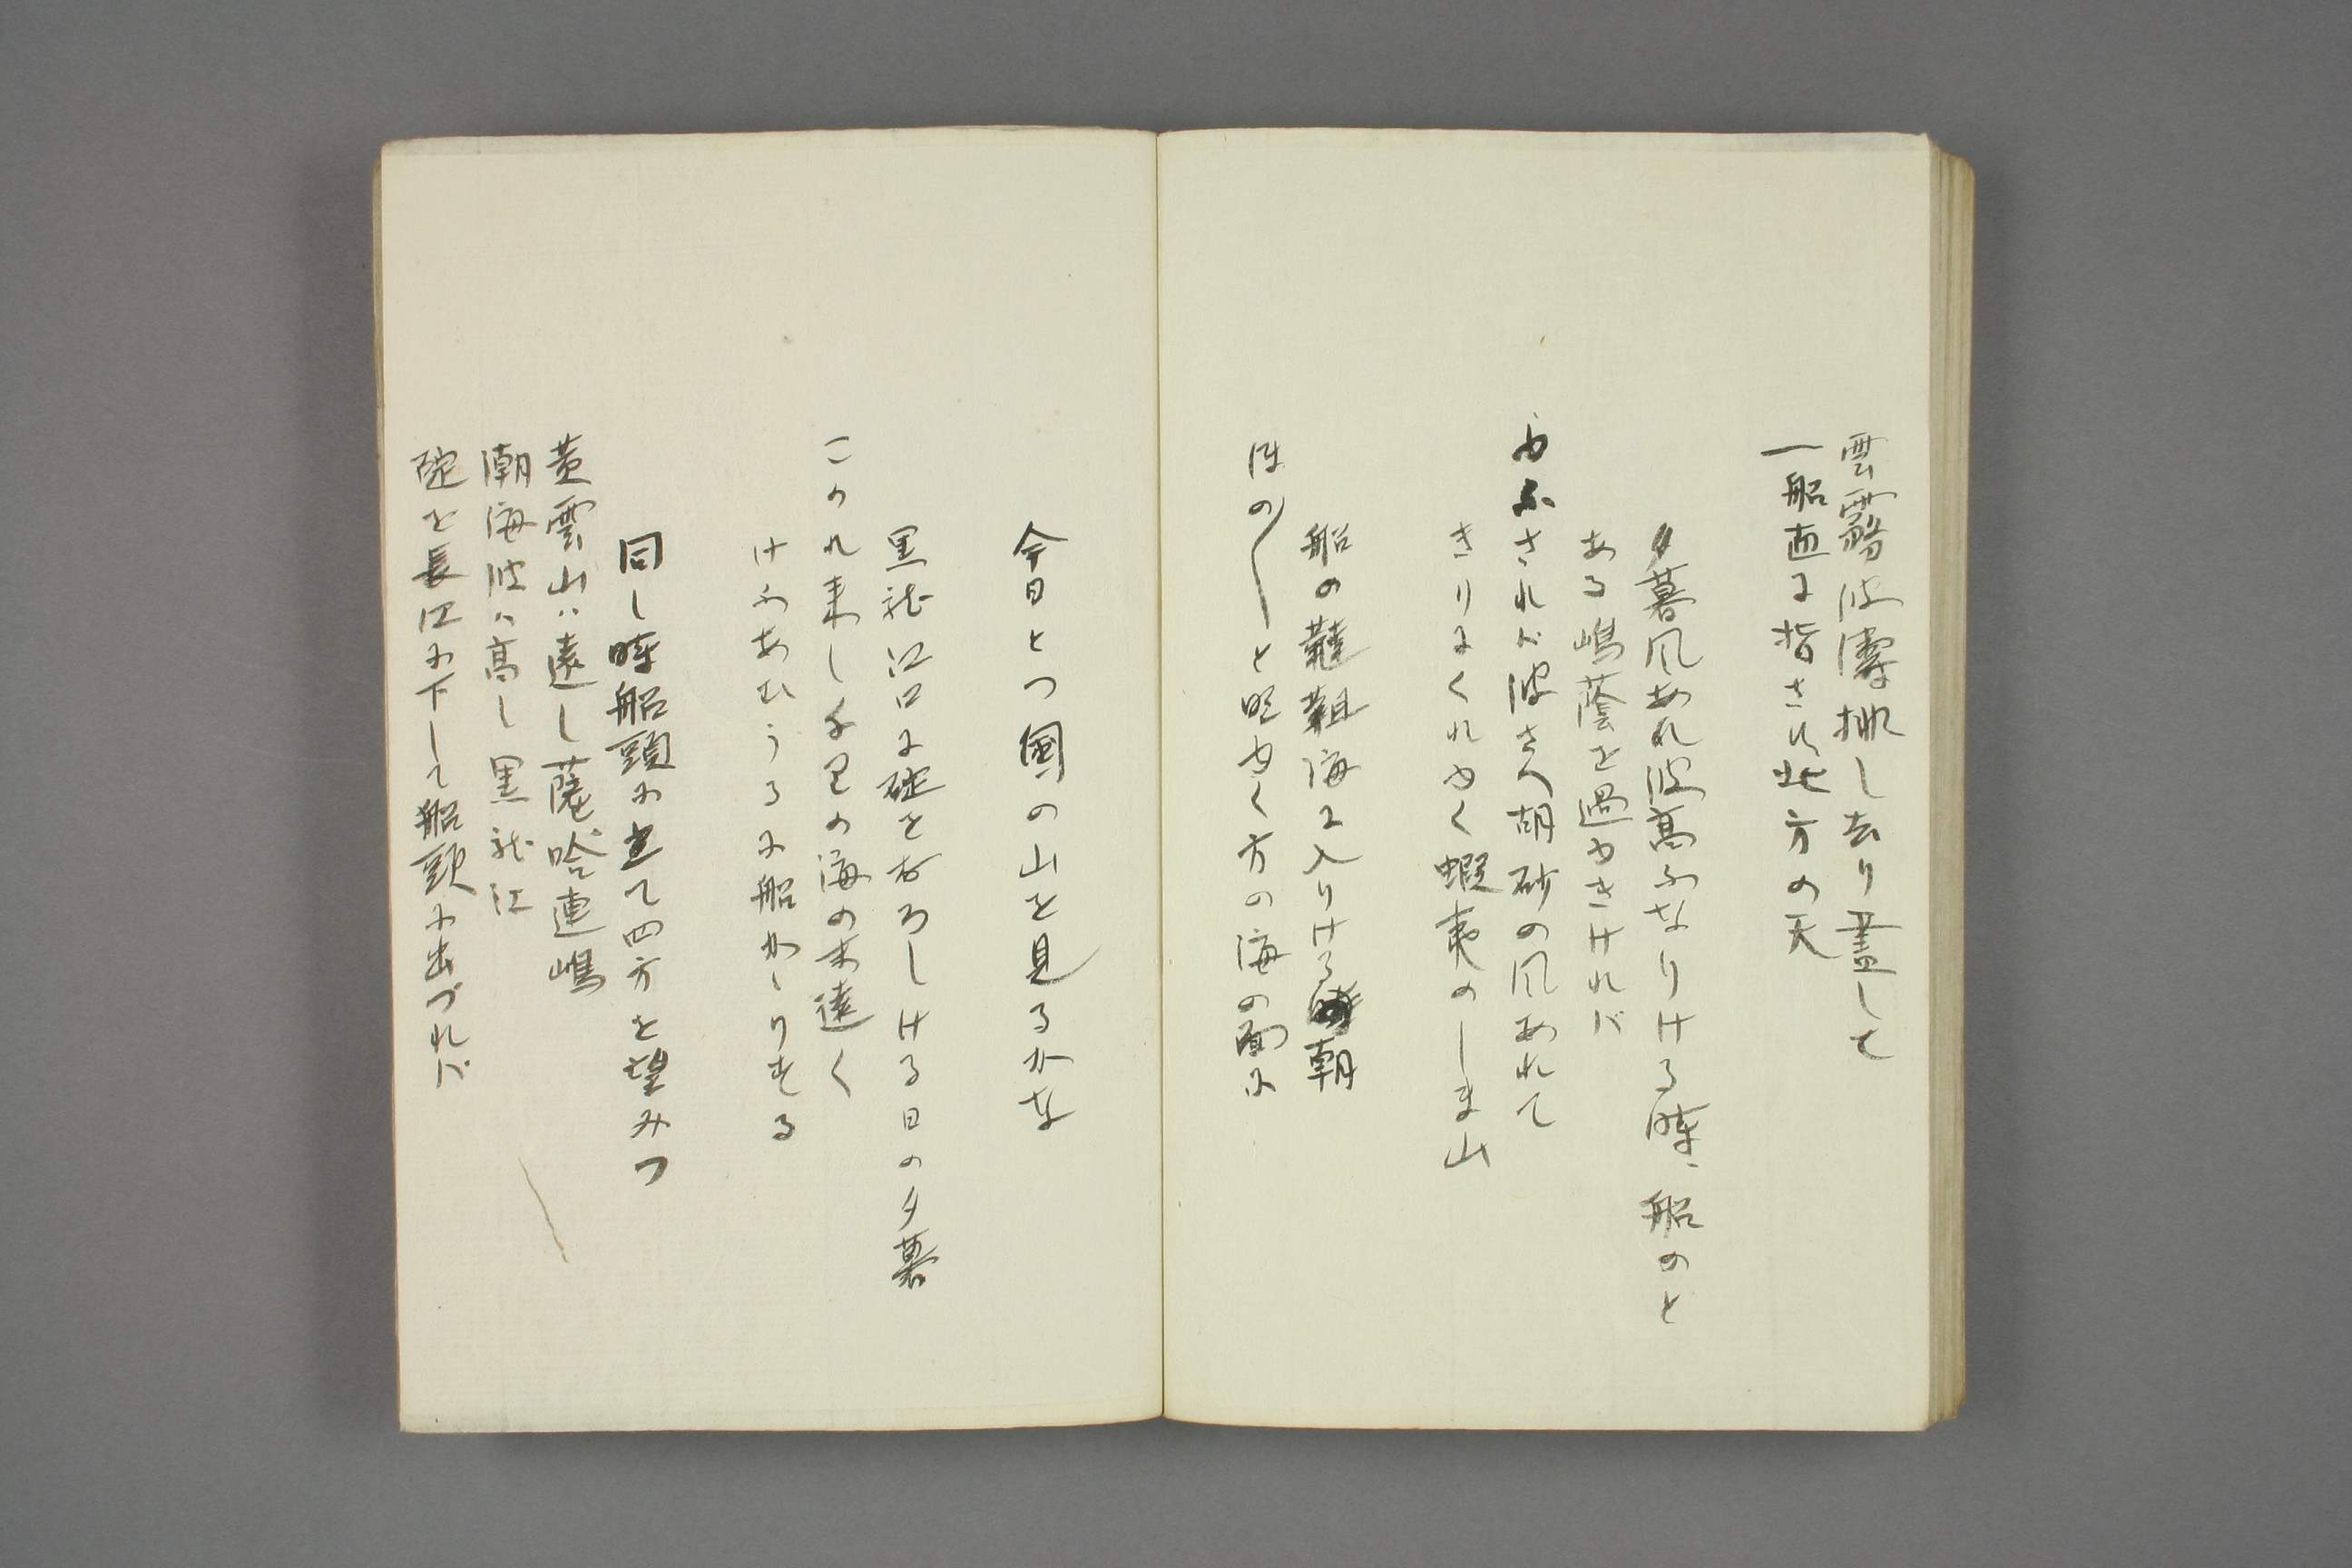 雲霧波濤排し去り盡して
一船直に指さん北方の天
夕暮風あれ波高ふなりける時、船のと
ある嶋蔭を過ゆきければ
ゆふされば波さへ胡砂の風あれて
きりにくれゆく蝦夷のしま山
船の韃靼海に入りける朝
ほの〳〵と明ゆく方の海の面に
今日とつ國の山を見るかな
黒龍江口に碇をおろしける日の夕暮
こかれ来し千里の海の末遠く
けふあむうるに船かゝりする
同し時船頭に立て四方を望みつ
黄雲山ハ遠し薩哈連嶋
潮海波ハ高し黒龍江
碇を長江に下して船頭に出づれば